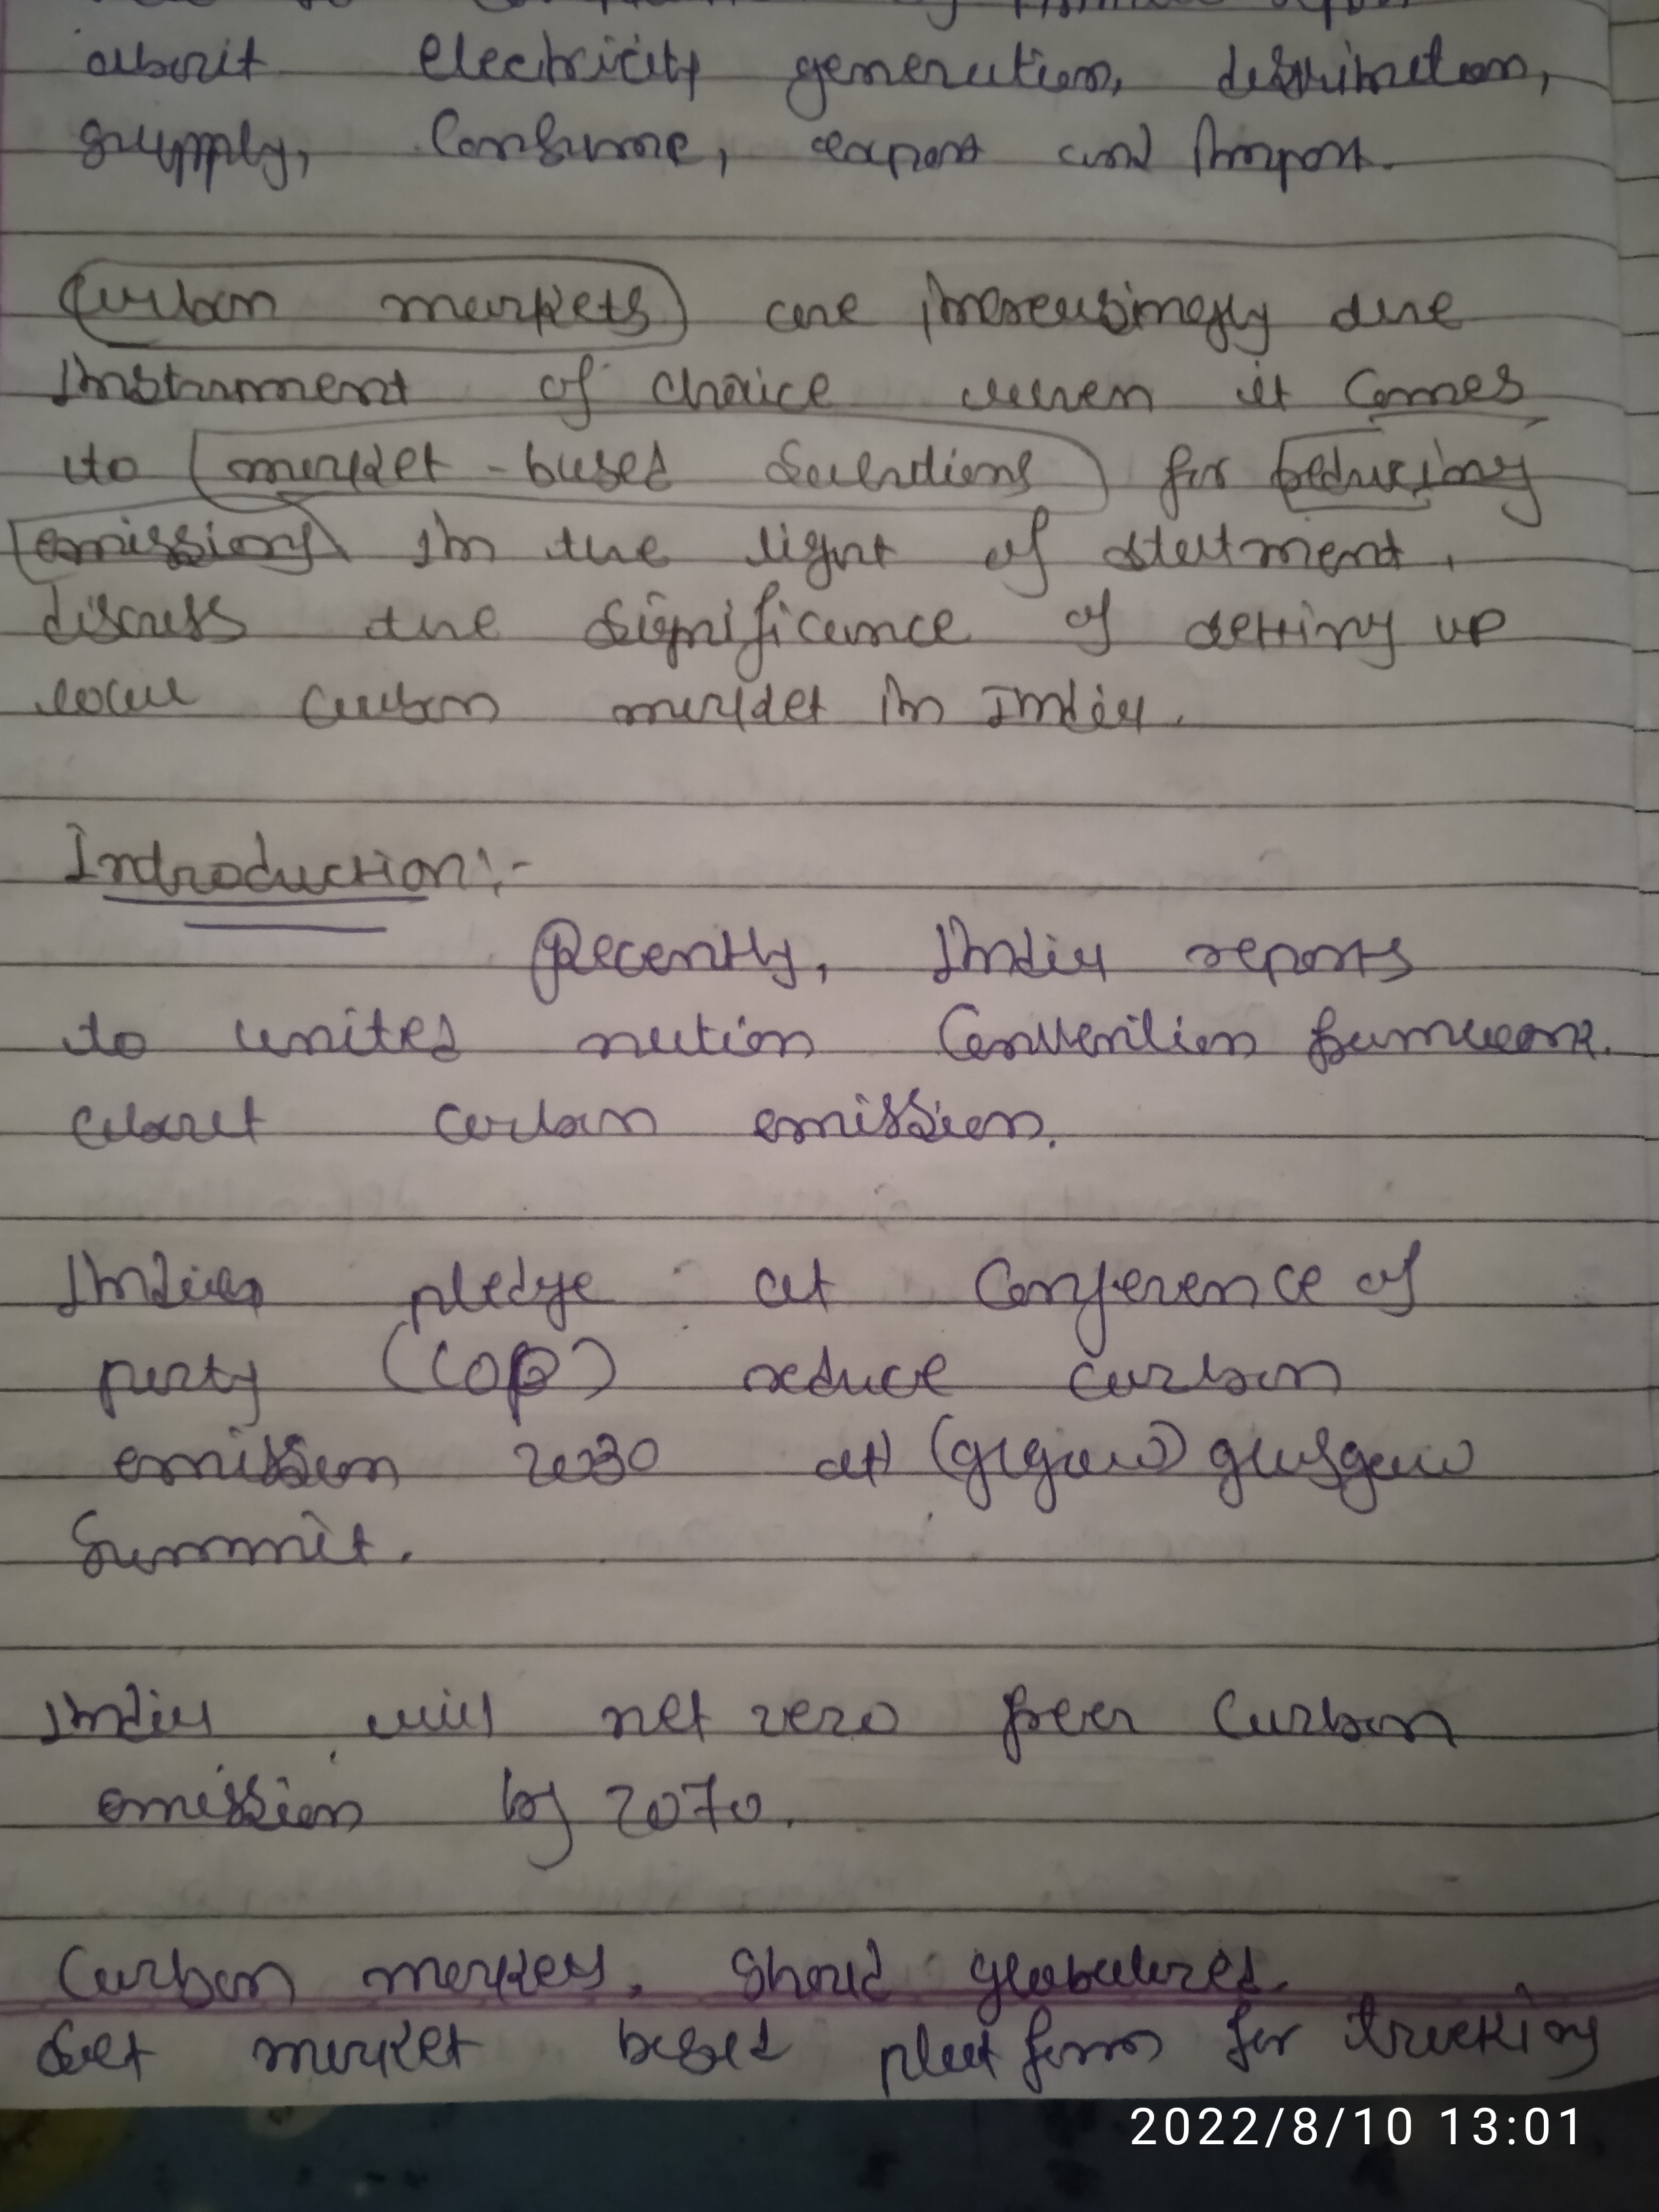 about electricity generation, distribution,
supply, Consume, export and Import.
Carbon markets are increasingly the
Instrument of choice when it Comes
to market-based Solutions for Reducing
emissions In the light of statment,
discuss the significance of setting up
local carbon market in India.
Introduction:-
Recently, India reports
to united nation Convention framwork
about carbon emission.
India pledge at Conference of
party (COP) reduce carbon
emission 2030 at glasgow
Summit.
India will net zero Carbon
emission by 2070.
Carbon markets. should globalized.
Set market based platform for tracking
2022/8/10 13:01